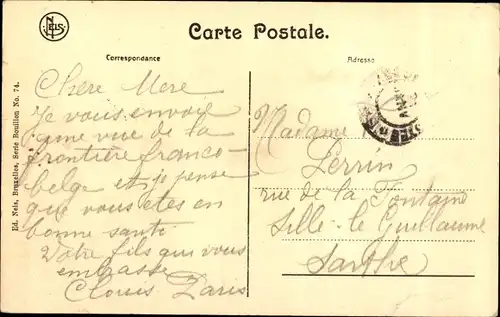 NELS
Carte Postale.
Correspondance
Adresse
Chère Mere
Je vous envoie
une vue de la
frontière franco-
belge et je pense
que vous etes en
bonne santé
Votre fils qui vous
embrasse
Clouis Paris
Madame
Perrin
rue de la Fontaine
Sille-le Guillaume
Sarthe
Ed. Nels, Bruxelles, Serie Bouillon No. 74.